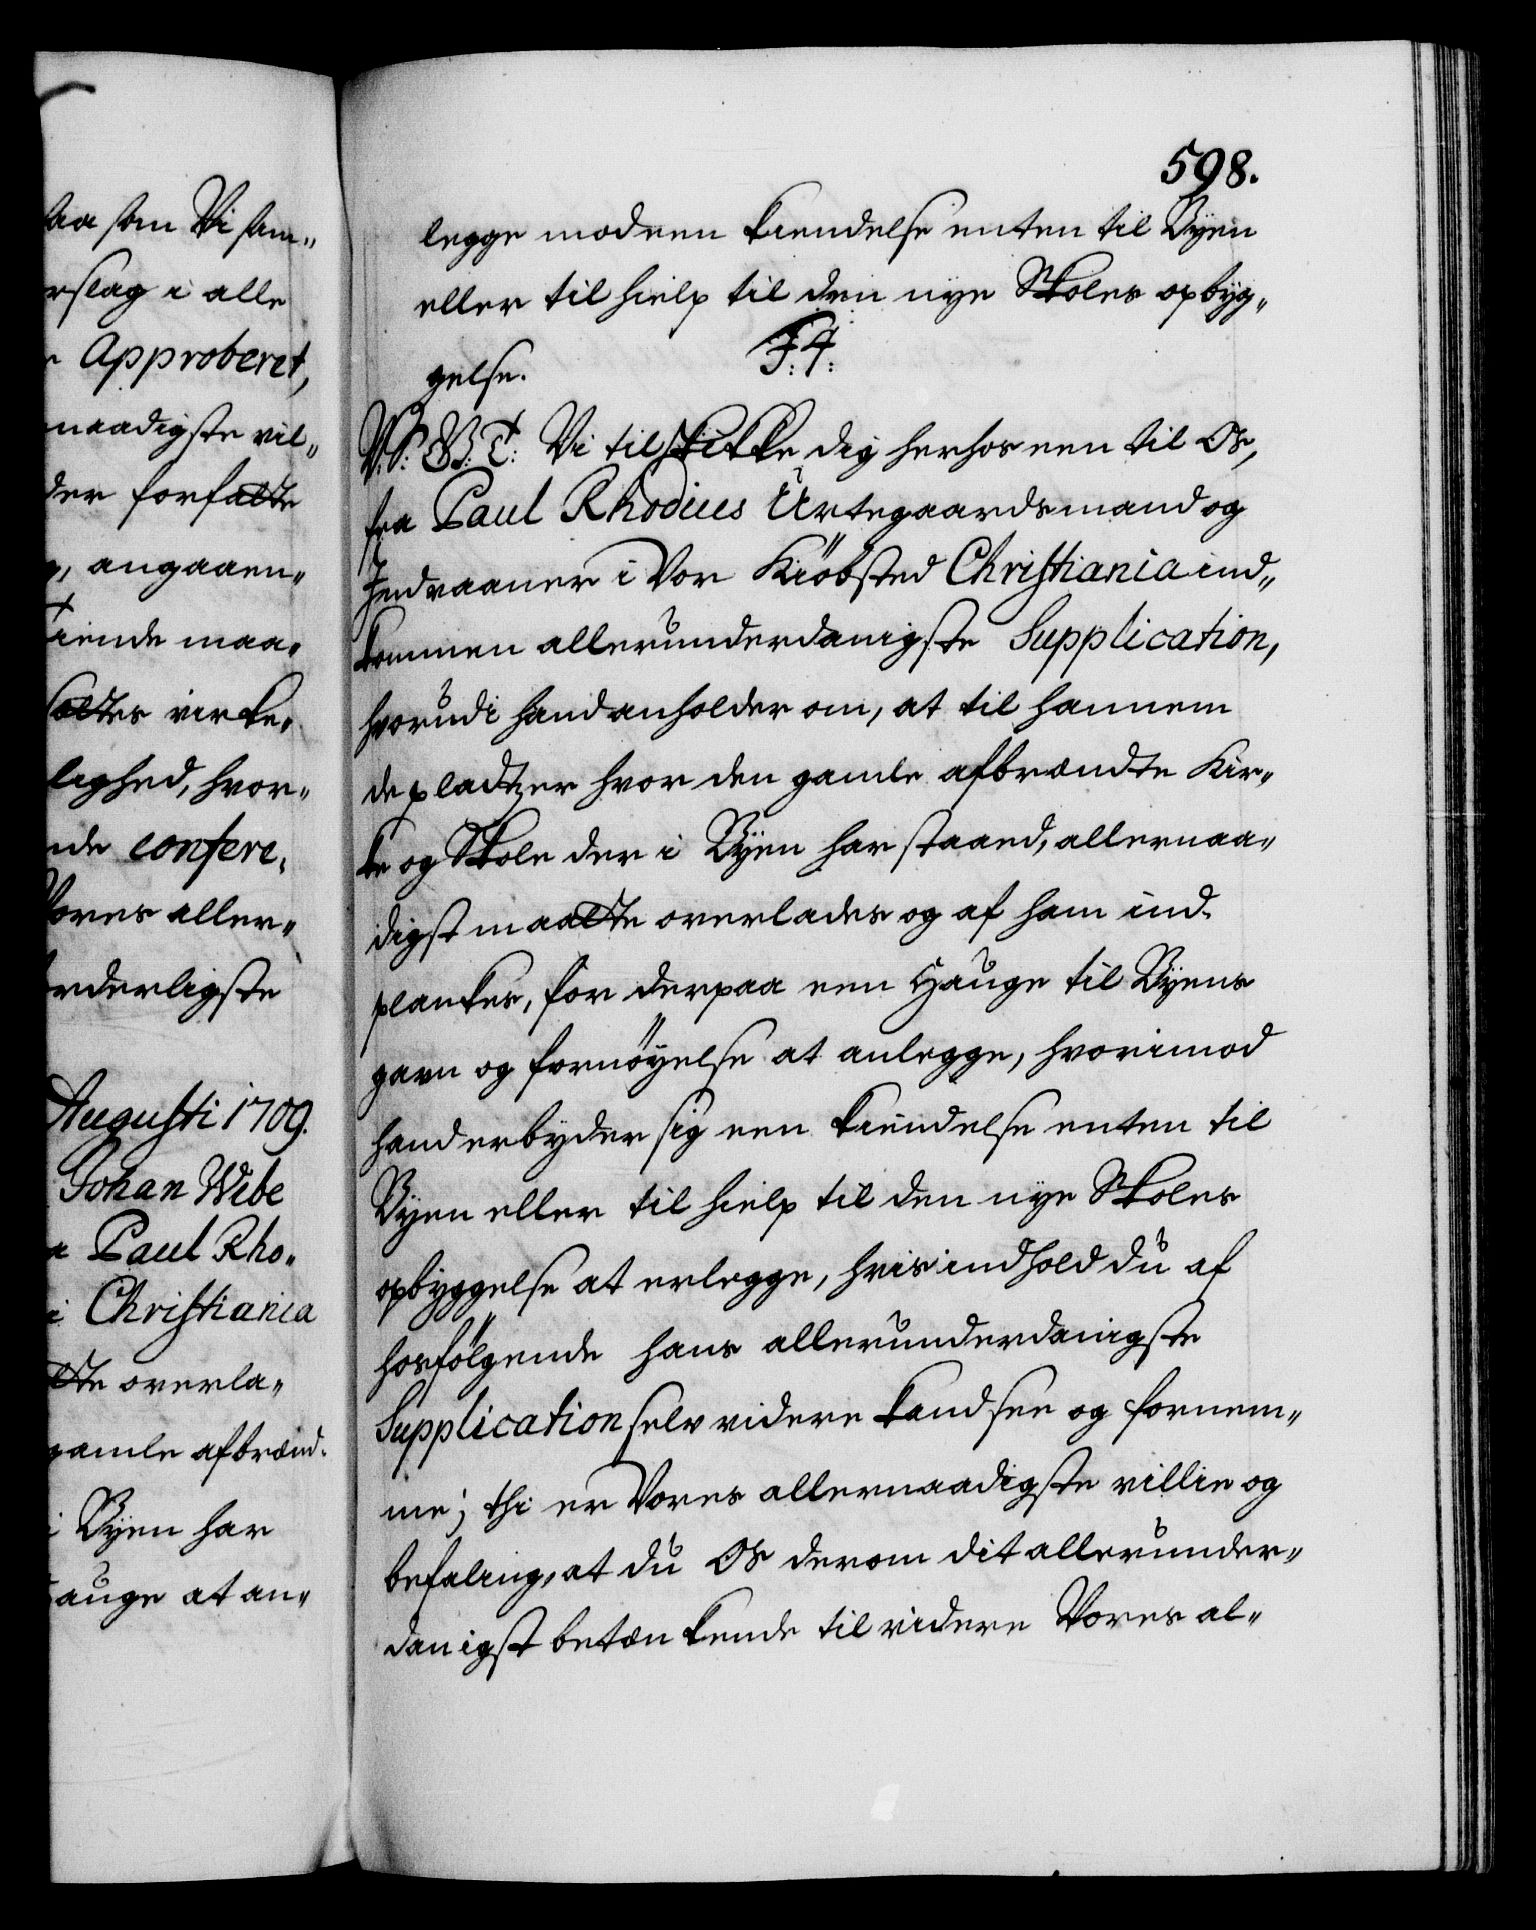 aa som Vi sam„
rslag i alle
r Approberet,
naadigste vil„
der forfatte
g, angaaen„
tiende maa„
sættes virke„
lighed, hvor„
nde confere,
Vores aller„
rderligste
Augusti 1709.
Johan Wibe
a Paul Rho„
i Christiania
tte overla„
gamle afbrænd„
i Byen har
auge at an„
598.
legge mod een kiendelse enten til Byen
eller til hielp til den nye Skoles opbyg„
gelse. F: 4:
V. S: G: T: Vi tilskikke dig herhos een til Os,
fra Paul Rhodius Urtegaardsmand og
Indvaaner i Vor Kiöbsted Christiania ind„
kommen allerunderdanigste Supplication,
hvorudi hand anholder om, at til hannem
de pladtzer hvor den gamle afbrændte Kir„
ke og Skole der i Byen har staaed, allernaa„
digst maatte overlades og af ham ind„
plankes, for derpaa een Hauge til Byens
gavn og fornöyelse at anlegge, hvorimod
hand erbyder sig een kiendelse enten til
Byen eller til hielp til den nye Skoles
opbyggelse at erlegge, hvis indhold du af
hosfölgende hans allerunderdanigste
Supplication selv videre kand see og fornem„
me; thi er Vores allernaadigste villie og
befaling, at du Os derom dit allerunder„
danigst betænkende til videre Vores al„